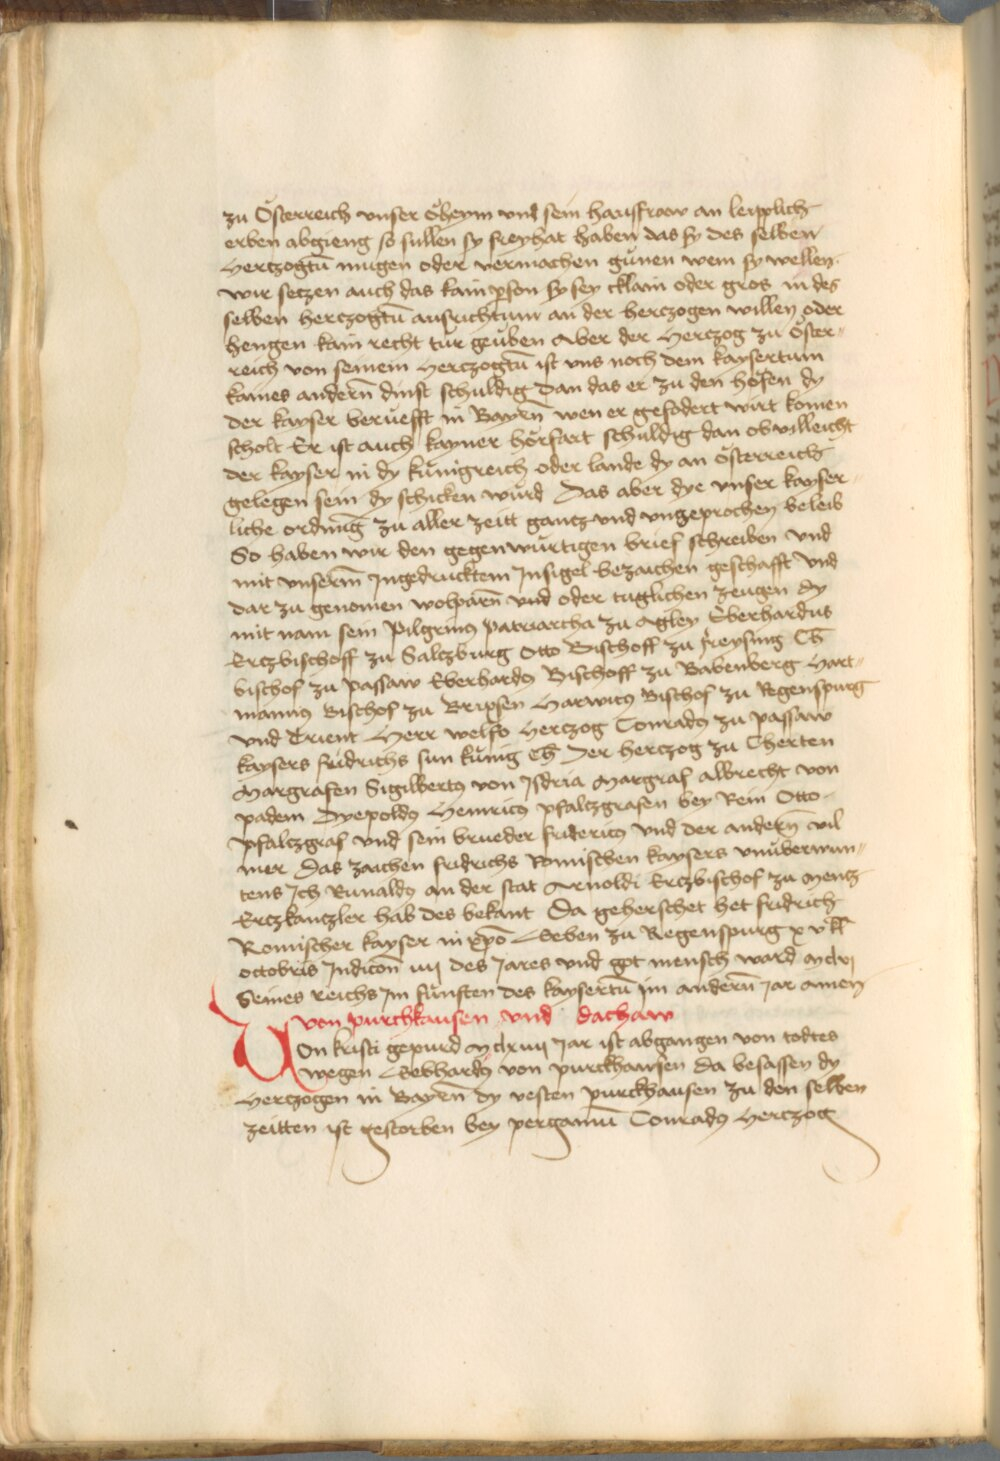 zu Österreich vnser öheym vnd sein hausfraw an leipplich
erben abgieng so sullen sy freyhat haben das sy des selben
hertzogtū mugen oder vermachen günen wem sy wellen.
wir setzen auch das kain ꝑson sy sey cklain oder gros in des
selben hertzogtū ausrichtum an der hertzogen willen oder
hengen kain recht tür geuben Aber der Hertzog zu Öster=
reich von seinem Hertzogtū ist vns noch dem kaysertum
kaines andern̄ dinst schuldig dan das er zu den höfen dy
der kayser berüefft in Bayrn̄ wen er gefodert wirt komen
scholt Er ist auch kayner hörfart schuldig dan ob villeicht
der kayser in dy künigreich oder lande dy an österreich
gelegen sein dy schicken würd Das aber dye vnser kayser=
liche ordnūg zu aller zeitt gantz vnd vngeprochen beleib
So haben wir den gegenwürtigen brief schreiben vnd
mit vnserm̄ Ingedrucktem Insigel bezaichen geschafft vnd
dar zu genomen wolparn̄ vnd oder tuglichen zeugen dy
mit nam sein Pilgrimꝰ patriarcha zu Agley Eberhardus
Ertzbischoff zu Saltzburg Otto Bischoff zu freysing Cħ
bischof zu passaw Eberhardꝰ Bischoff zu Babenberg Hart=
mannꝰ Bischof zu Brixsen Harwicꝰ Bischof zu Regenspurg
vnd Trient Herr welfo Hertzog Conradꝰ zu passaw
kaysers fridrichs sun künig Cħ Der hertzog zu Cherten
Margrafen Sigilbertꝰ von Isdria Margraf albrecht von
padem Dyepoldꝰ Heinricꝰ pfaltzgrafen bey Rein Otto
pfaltzgraf vnd sein brueder fridericꝰ vnd der andern̄ vil
mer Das zaichen fridrichs Romischen kaysers vnüberwun=
tens Ich Runaldꝰ an der stat Arnoldi Ertzbischof zu Mentz
Ertzkantzler hab des bekant Da geherschet het fridrich
Romischer kayser in xp̄o Geben zu Regenspurg xv kl̄
octobris Indicōn iiij des Jares vnd got mensch ward Mclvj
Seines reichs Im fünften des kaysertū im andern̄ Jar Amen
von purckhausen vnd dachaw
Von kristi gepurd Mclxiiij Jar ist abgangen von todtes
wegen Gebhardꝰ von purckhausen da besassen dy
Hertzogen in Bayrn̄ dy vesten purckhausen zu den selben
zeitten ist gestorben bey pergamū Conradꝰ Hertzog